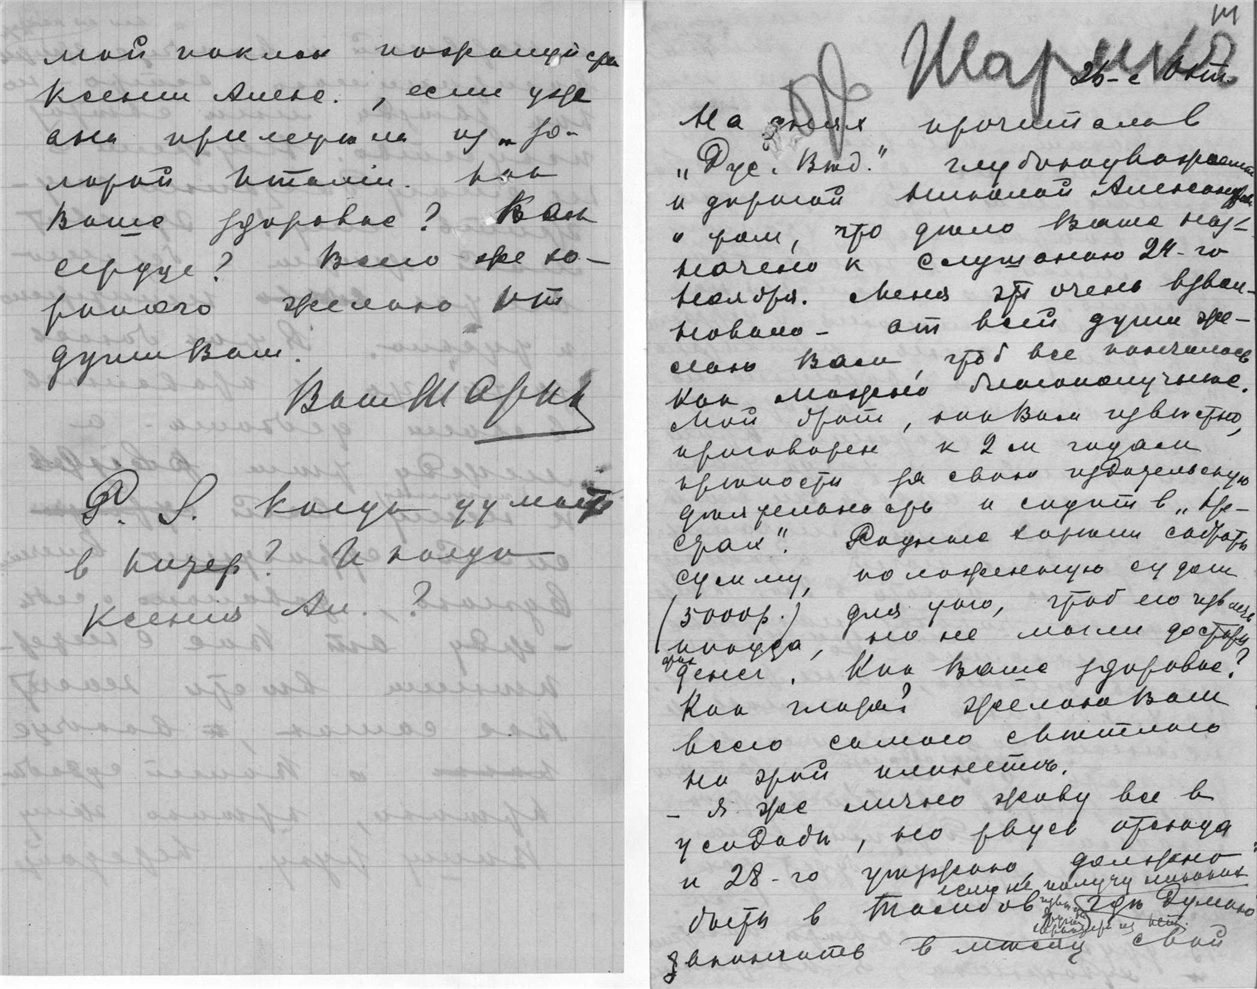 мой поклон пожалуйста
Ксении Алекс., если уже
она приехала из „до-
рогой Италіи. Как
Ваше здоровье? Как
сердце? Всего же хо-
рошего желаю от
души Вам.
Ваш Шарик
P. S. Когда думаете
в Питер? И когда
Ксения Ал.?
Шарико
25-е Окт.
На днях прочитала в
„Рус. Вѣд." глубокоуважаемый
и дорогой Николай Александр.
о том, что дѣло Ваше наз-
начено к слушанью 24-го
ноября. Меня это очень взвол-
новало – от всей души же-
лаю Вам, чтоб все кончилось
как можно благополучнее.
Мой брат, как Вам извѣстно,
приговорен к 2 м годам
крѣпости за свою издательскую
дѣятельность и сидит в „Кре-
стах". Родные хотели собрать
сумму, положенную судом
(5000 р.) для того, чтоб его извлечь
оттуда, но не могли достать
денег. Как Ваше здоровье?
Как глаза? Желаю Вам
всего самого свѣтлого
на этой планетѣ.
– Я же лично живу все в
усадьбѣ, но рвусь отсюда
и 28-го уезжаю, должно
если не получу никаких
быть в Тамбов гдѣ думаю
закончить в мѣсяц свой